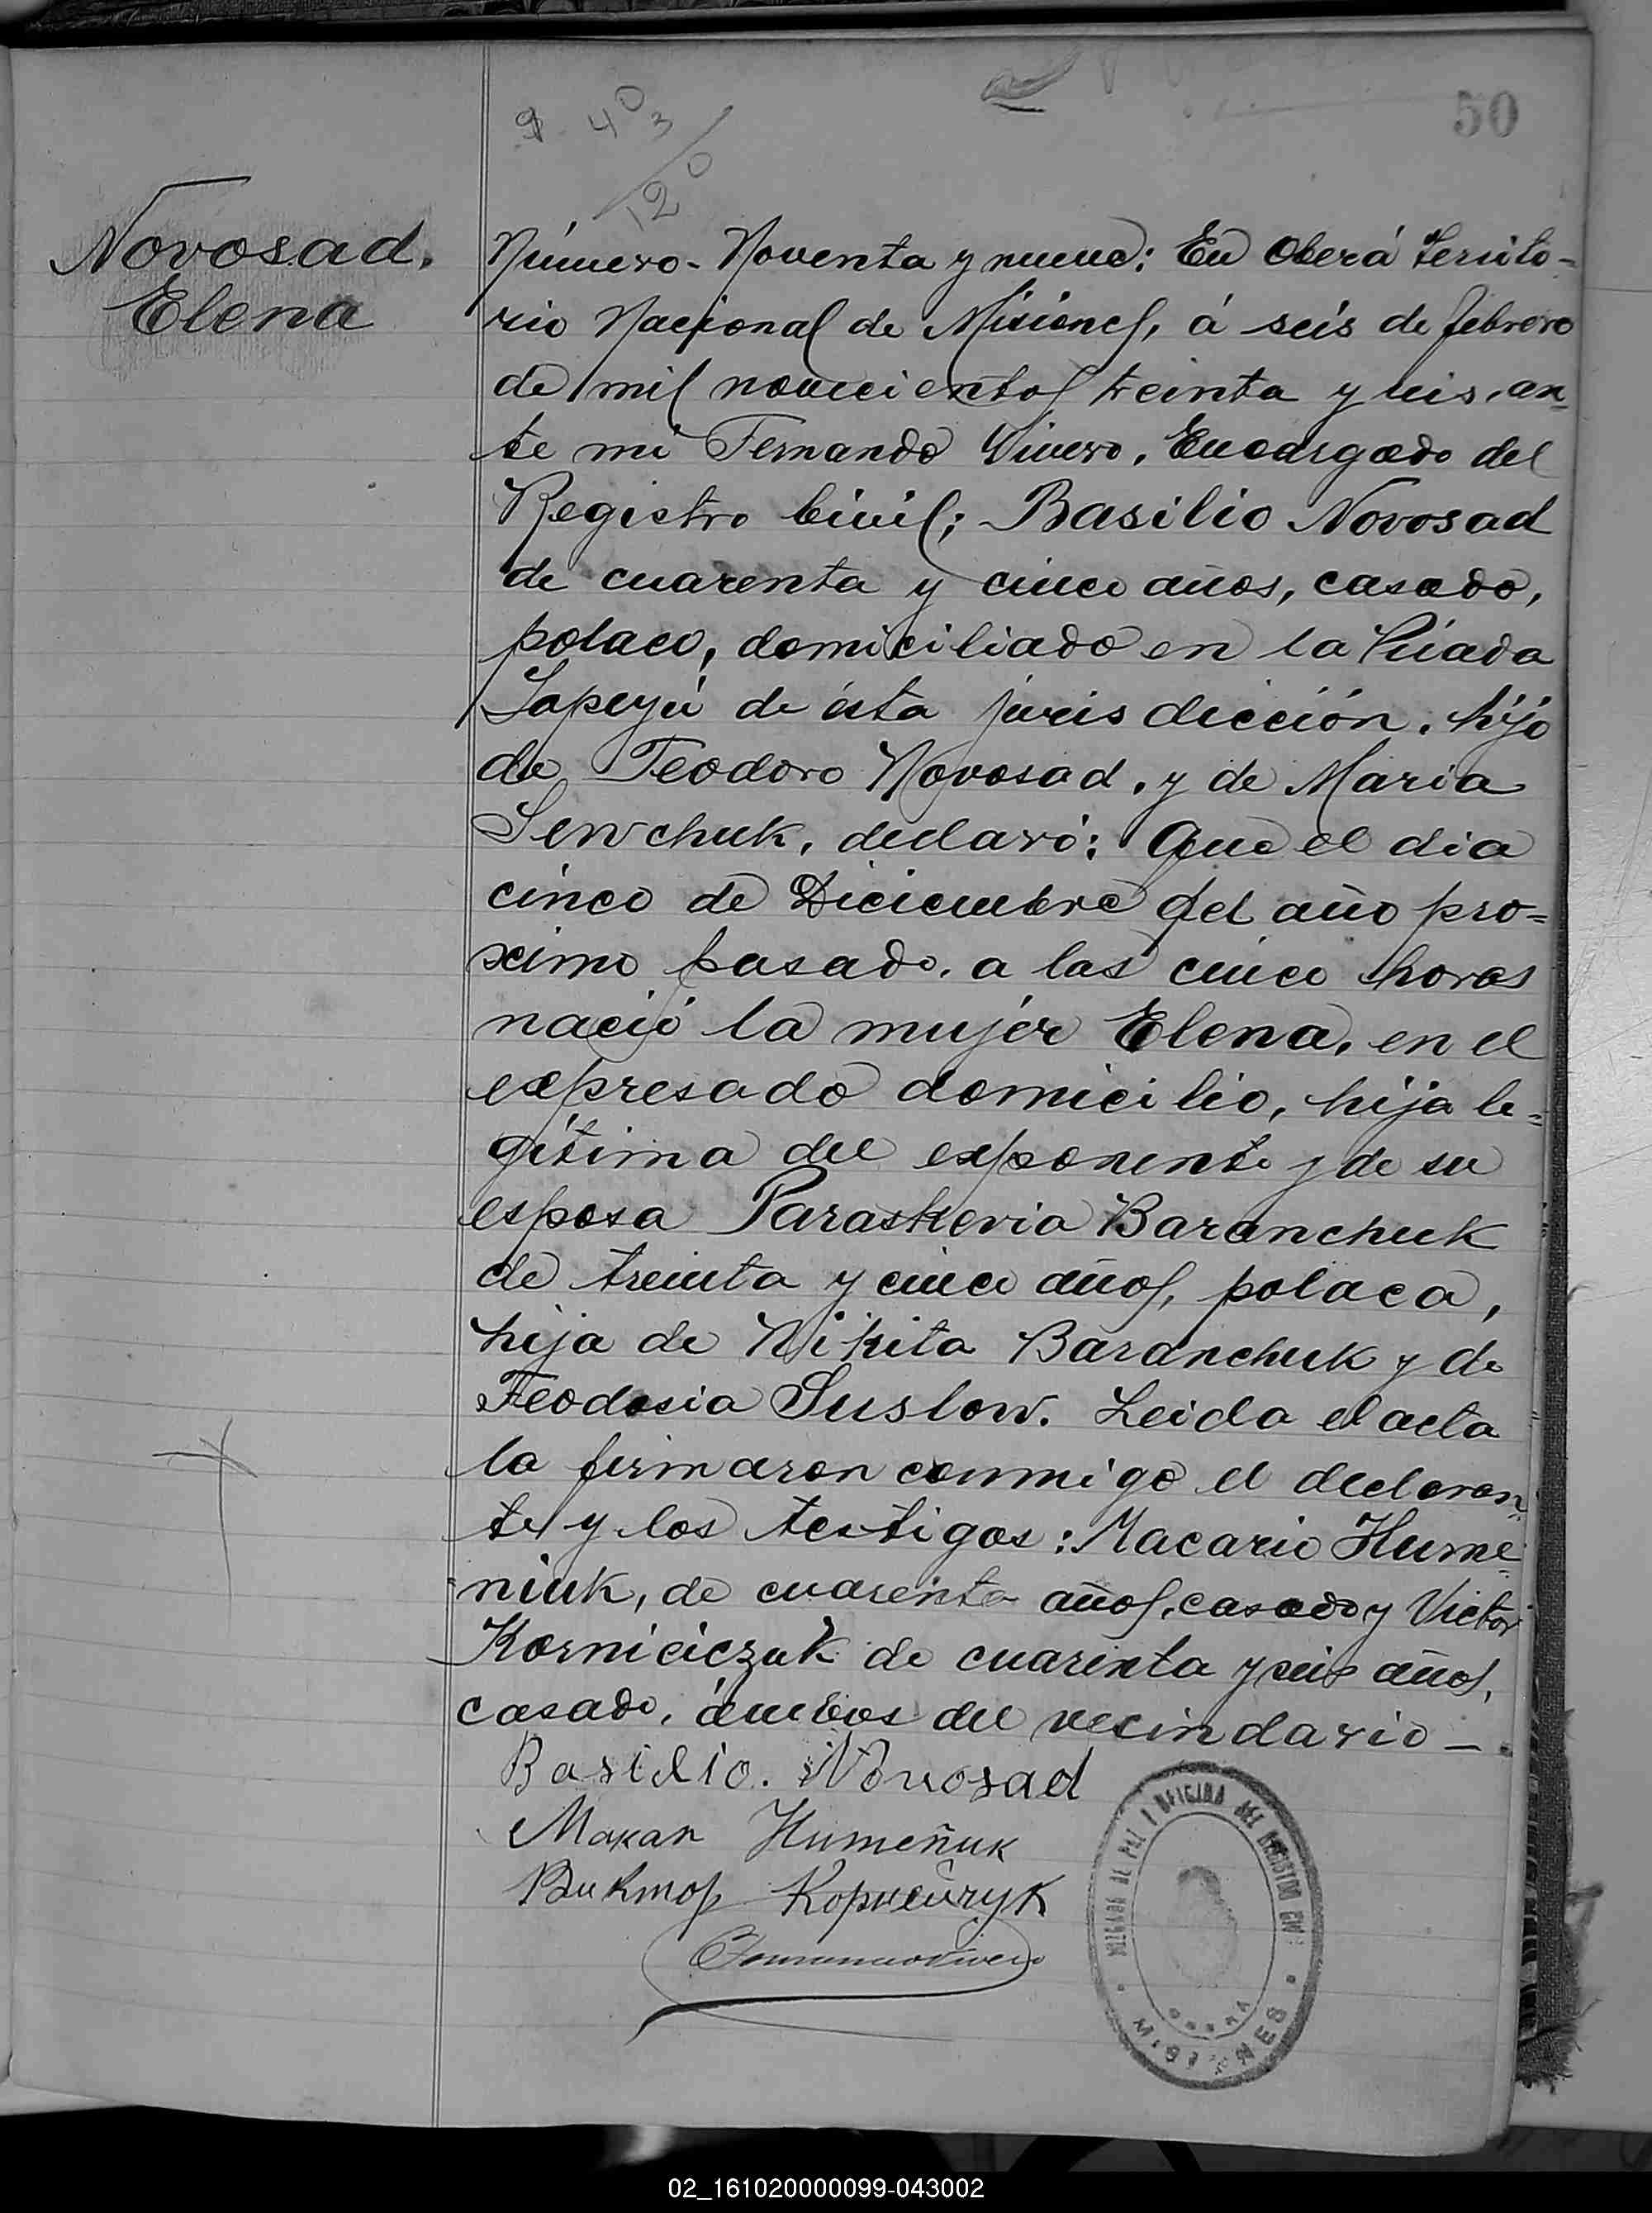 50
9 - 4 0 3
120
Novosad,
Elena
Número - Noventa y nueve: En Oberá territo-
rio Nacional de Misiones, á seis de febrero
de mil novecientos treinta y seis, an-
te mi Fernando Vivero, Encargado del
Registro Civil; Basilio Novosad
de cuarenta y cinco años, casado,
polaco, domiciliado en la Picada
Yapeyú de ésta jurisdicción, hijo
de Teodoro Novosad, y de Maria
Sewchuk, declaró: Que el dia
cinco de Diciembre del año pro=
ximo pasado, a las cinco horas
nació la mujer Elena, en el
expresado domicilio, hija le=
gitima del exponente y de su
esposa Paraskevia Baranchuk
de treinta y cinco años, polaca,
hija de Nikita Baranchuk y de
Feodosia Suslow. Leida el acta
la firmaron conmigo el declaran
te y los testigos: Macario Hume-
niuk, de cuarenta años, casado y Victor
Korniciczuk de cuarenta y seis años,
casado, ámbos del vecindario —.
Basilio. Novosad
Макар Humeñuk
Виктор Корнейчук
JUZGADO DE PAZ I OFICINA DEL REGISTRO CIVIL
OBERA
MISIONES
02_161020000099-043002